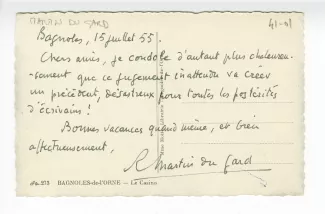 MARTIN DU GARD
41-91
Bagnoles, 15 juillet 55.
Chers amis, je condole d'autant plus chaleureu-
sement que ce jugement inattendu va créer
un précédent, désastreux pour toutes les postérités
d'écrivains !
Bonnes vacances quand même, et bien
affectueusement,
R. Martin du Gard
273 BAGNOLES-de-l'ORNE — Le Casino